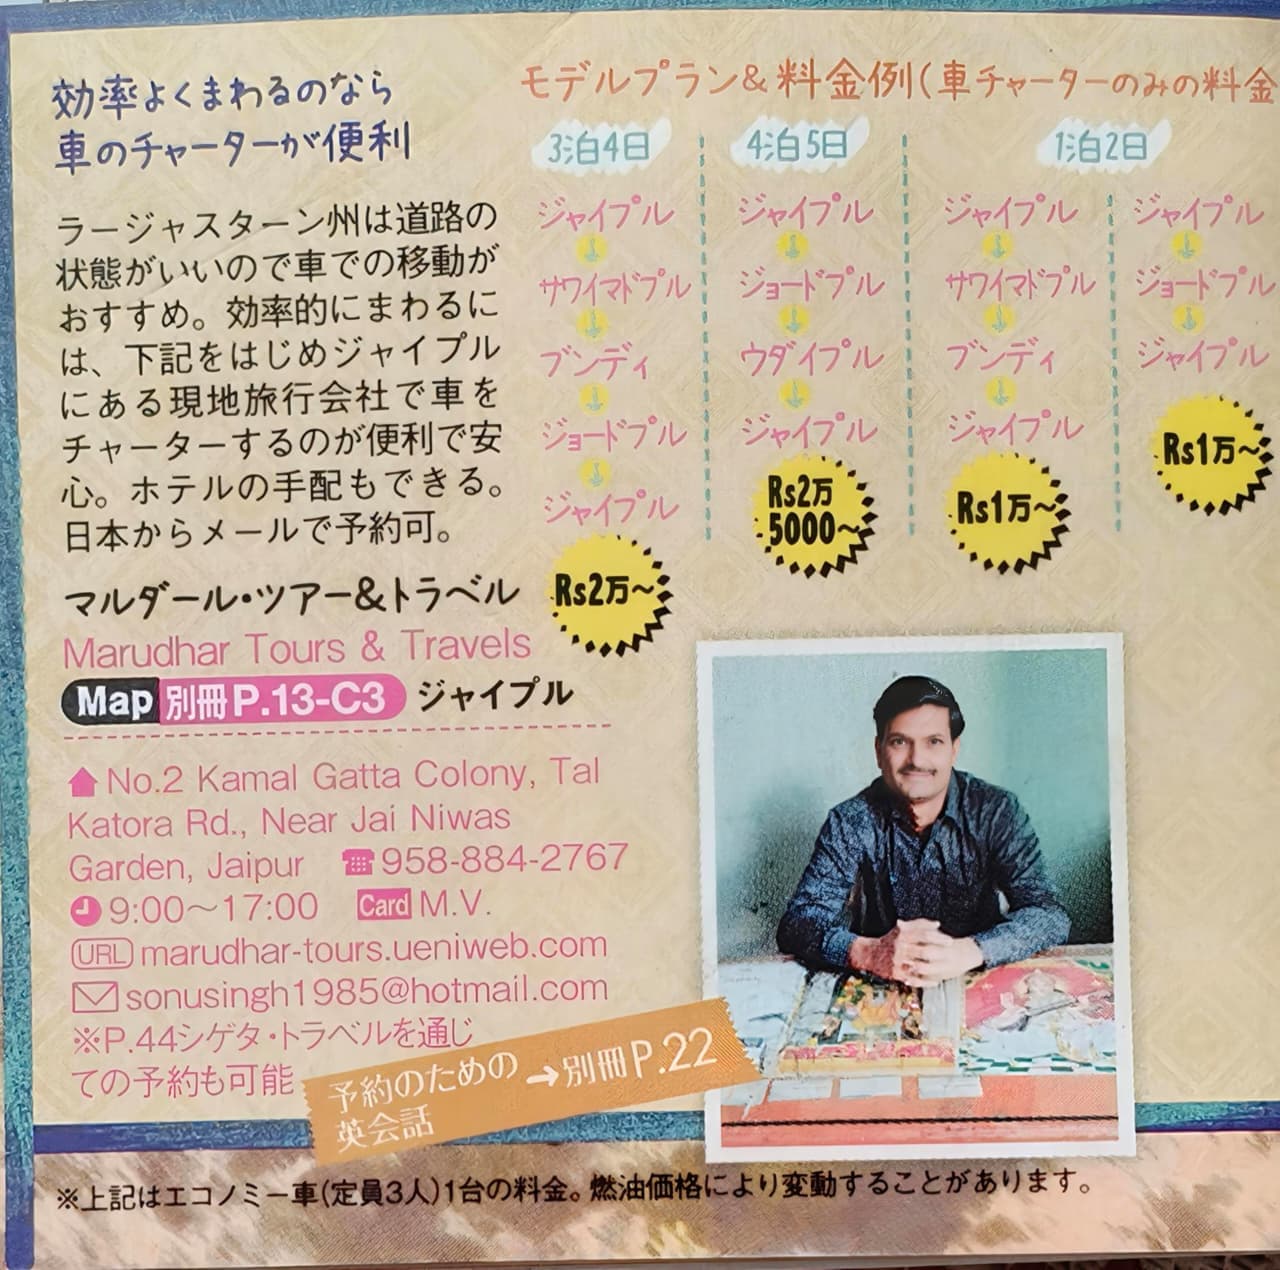 効率よくまわるのなら
車のチャーターが便利
ラージャスターン州は道路の
状態がいいので車での移動が
おすすめ。効率的にまわるに
は、下記をはじめジャイプル
にある現地旅行会社で車を
チャーターするのが便利で安
心。ホテルの手配もできる。
日本からメールで予約可。
マルダール・ツアー&トラベル
Marudhar Tours & Travels
Map 別冊P.13-C3 ジャイプル
No.2 Kamal Gatta Colony, Tal
Katora Rd., Near Jai Niwas
Garden, Jaipur 958-884-2767
9:00～17:00 Card M.V.
URL marudhar-tours.ueniweb.com
sonusingh1985@hotmail.com
※P.44シゲタ・トラベルを通じ
ての予約も可能
予約のための
英会話
→別冊P.22
モデルプラン&料金例(車チャーターのみの料金
3泊4日
ジャイプル
サワイマドプル
ブンディ
ジョードプル
ジャイプル
Rs2万～
4泊5日
ジャイプル
ジョードプル
ウダイプル
ジャイプル
Rs2万
5000～
1泊2日
ジャイプル
サワイマドプル
ブンディ
ジャイプル
Rs1万～
ジャイプル
ジョードプル
ジャイプル
Rs1万～
※上記はエコノミー車(定員3人)1台の料金。燃油価格により変動することがあります。